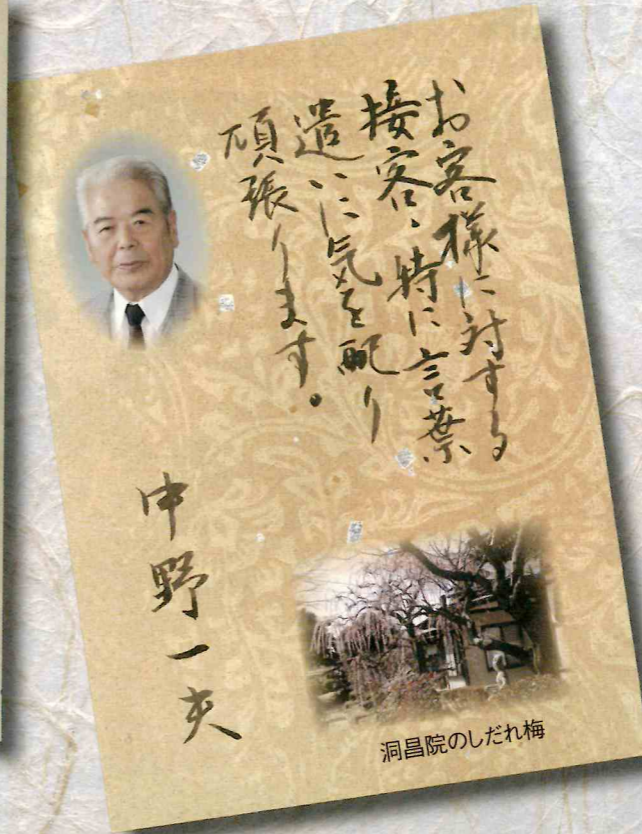 お客様に対する
接客、特に言葉
遣いに気を配り
頑張ります。
中野一夫
洞昌院のしだれ梅